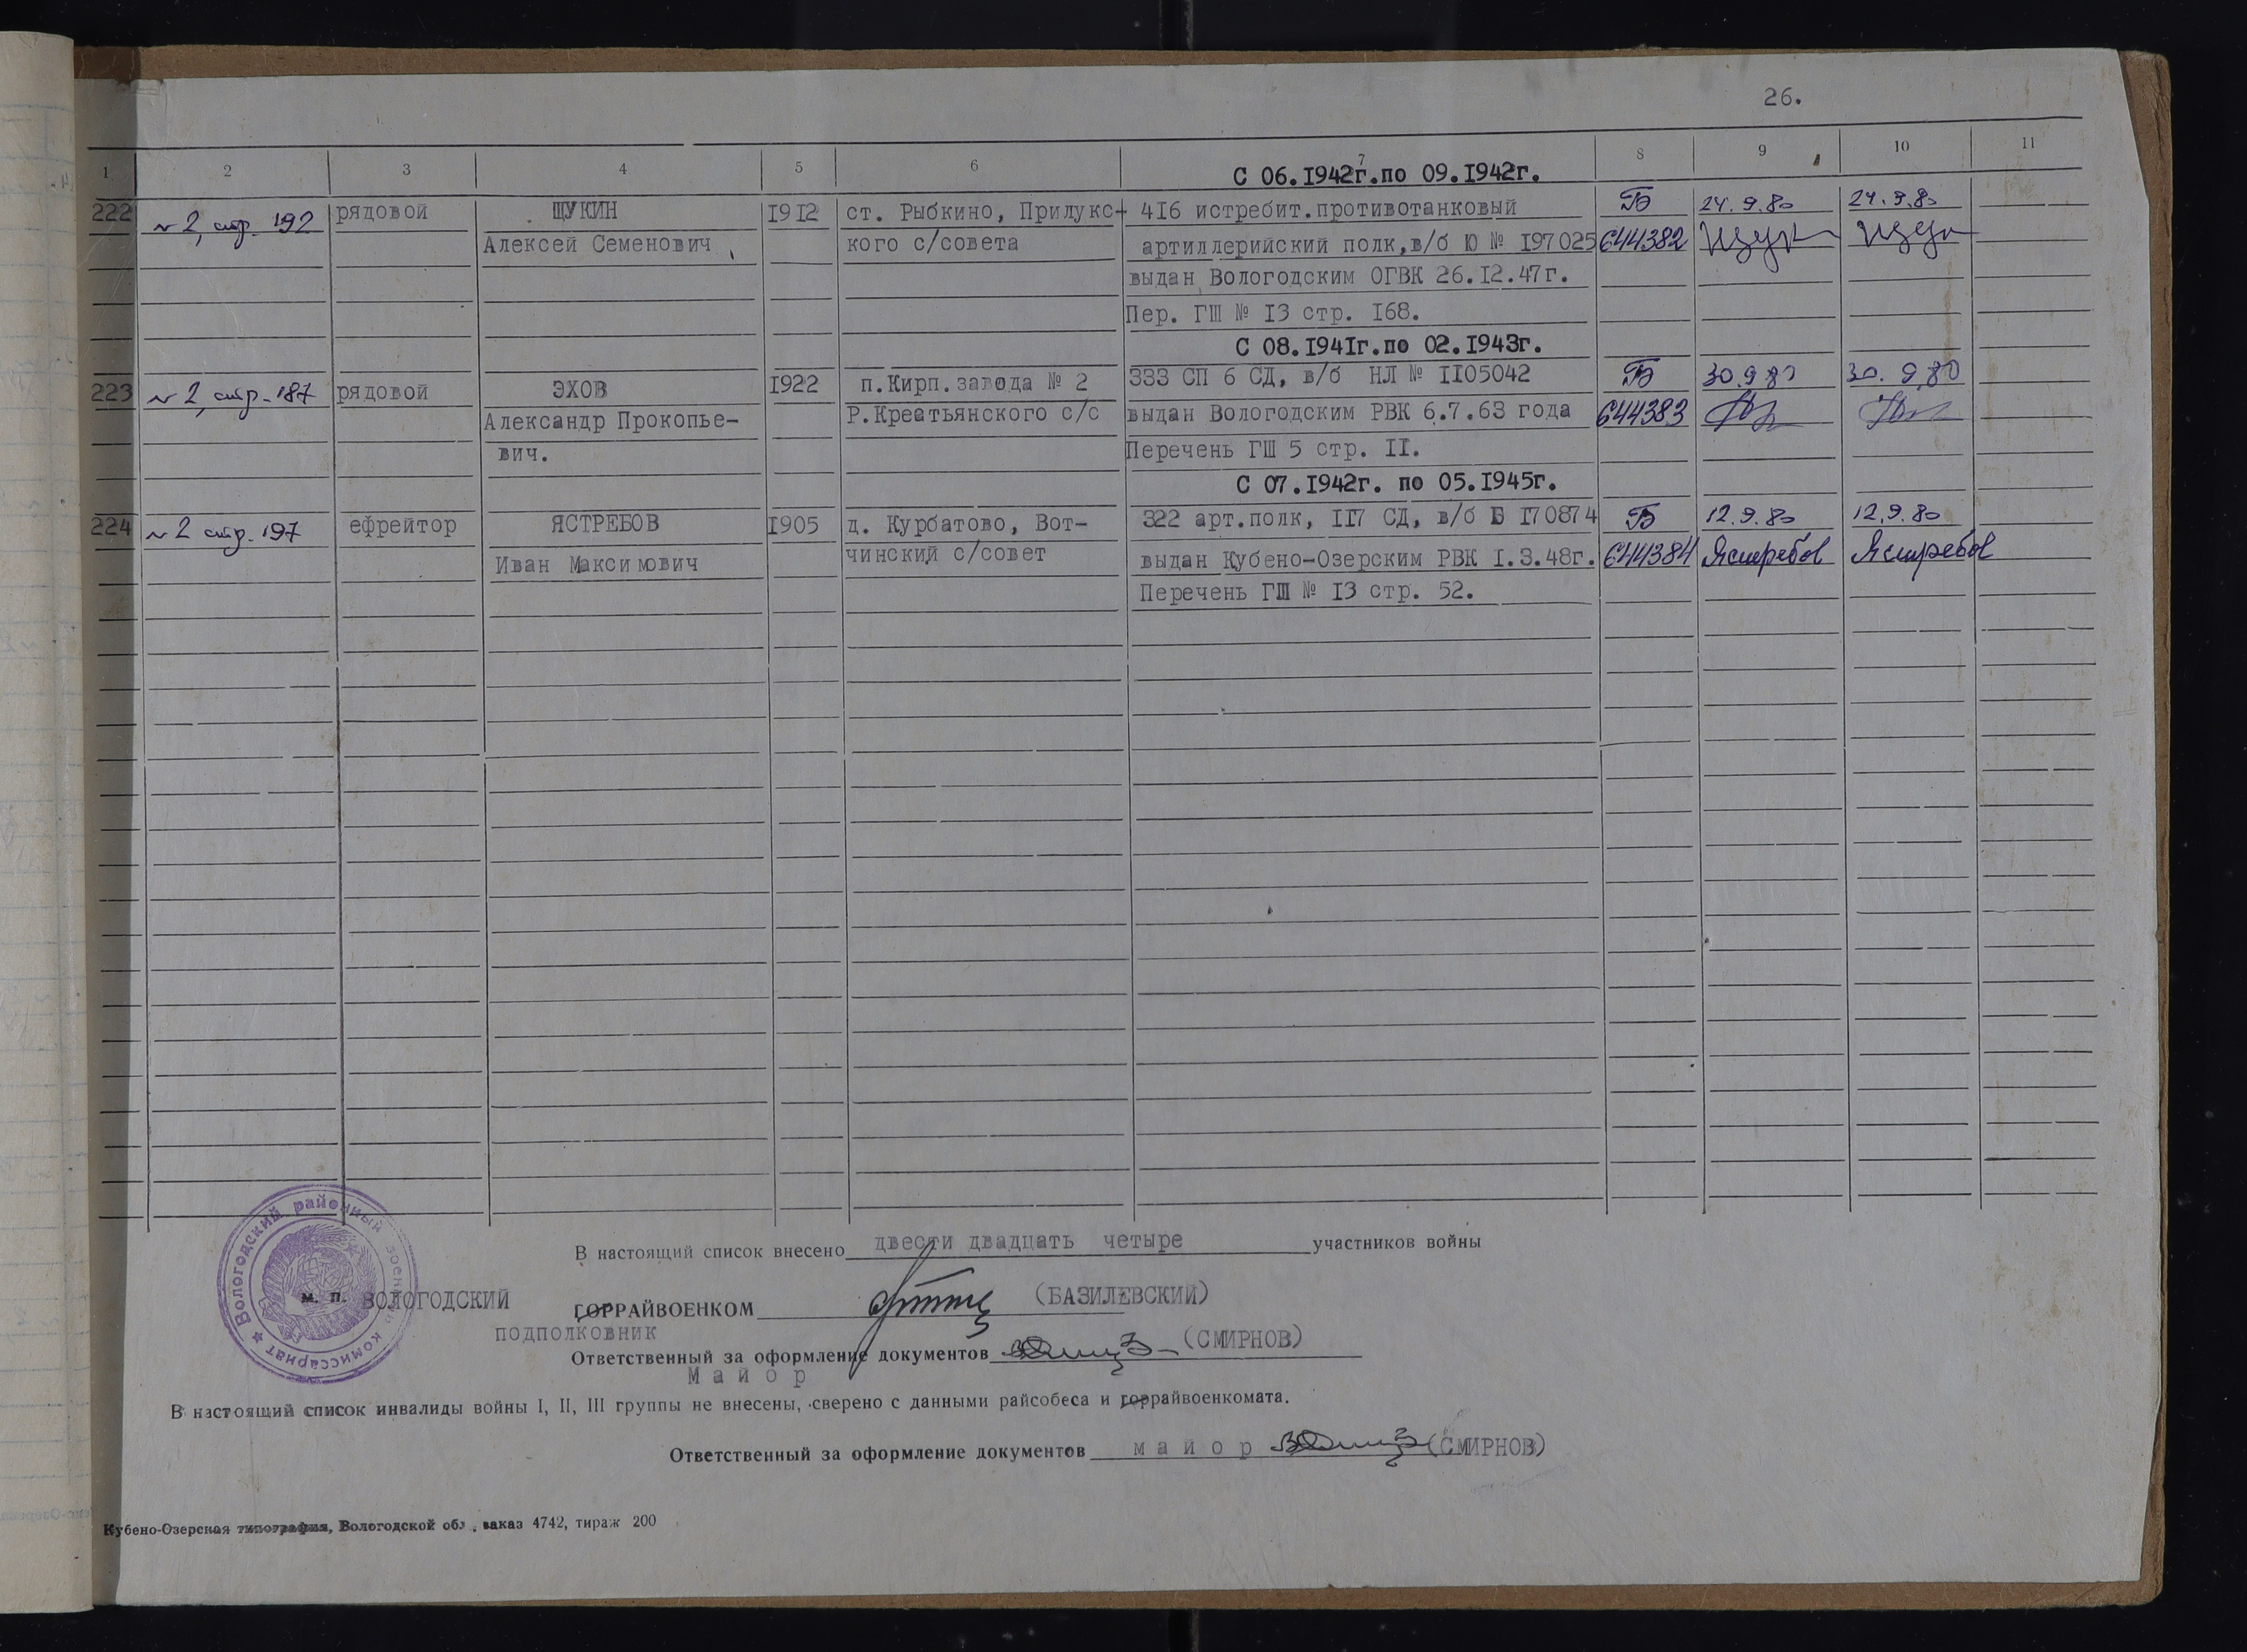 26.
1 2 3 4 5 6 7 8 9 10 11
С 06.1942г.по 09.1942г.
222 № 2, стр. 192 рядовой ЩУКИН 1912 ст. Рыбкино, Прилукс- 416 истребит.противотанковый Б 24.9.80 24.9.80
Алексей Семенович кого с/совета артиллерийский полк,в/б Ю № 197025 644382 Щук
выдан Вологодским ОГВК 26.12.47г.
Пер. ГШ № 13 стр. 168.
С 08.1941г.по 02.1943г.
223 № 2, стр. 187 рядовой ЭХОВ 1922 п.Кирп.завода № 2 333 СП 6 СД, в/б НЛ № 1105042 Б 30.9.80 30.9.80
Александр Прокопье- Р.Креатьянского с/с выдан Вологодским РВК 6.7.63 года 644383
вич. Перечень ГШ 5 стр. 11.
С 07.1942г. по 05.1945г.
224 № 2 стр. 197 ефрейтор ЯСТРЕБОВ 1905 д. Курбатово, Вот- 322 арт.полк, 117 СД, в/б Б 170874 Б 12.9.80 12.9.80
Иван Максимович чинский с/совет выдан Кубено-Озерским РВК 1.3.48г. 644384 Ястребов Ястребов
Перечень ГШ № 13 стр. 52.
В настоящий список внесено двести двадцать четыре участников войны
Вологодский районный военный комиссариат
м. п. ВОЛОГОДСКИЙ ГОРРАЙВОЕНКОМ (БАЗИЛЕВСКИЙ)
ПОДПОЛКОВНИК
Ответственный за оформление документов (СМИРНОВ)
Майор
В настоящий список инвалиды войны I, II, III группы не внесены, сверено с данными райсобеса и горрайвоенкомата.
Ответственный за оформление документов майор (СМИРНОВ)
Кубено-Озерская типография, Вологодской обл., заказ 4742, тираж 200